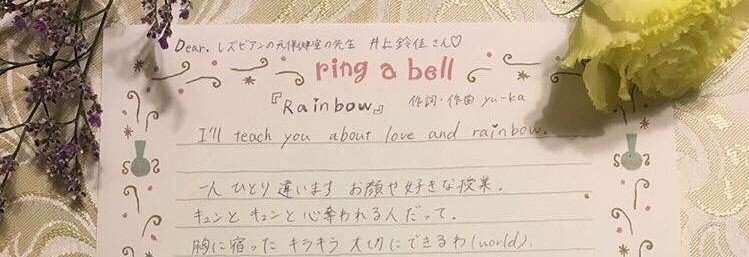 Dear. レズビアンの元保健室の先生 井上鈴佳さん♡
ring a bell
『Rainbow』 作詞・作曲 yu-ka
I'll teach you about love and rainbow.
一人ひとり違います お顔や好きな授業。
キュンと キュンと心奪われる人だって。
胸に宿った キラキラ 大切にできるわ(world).